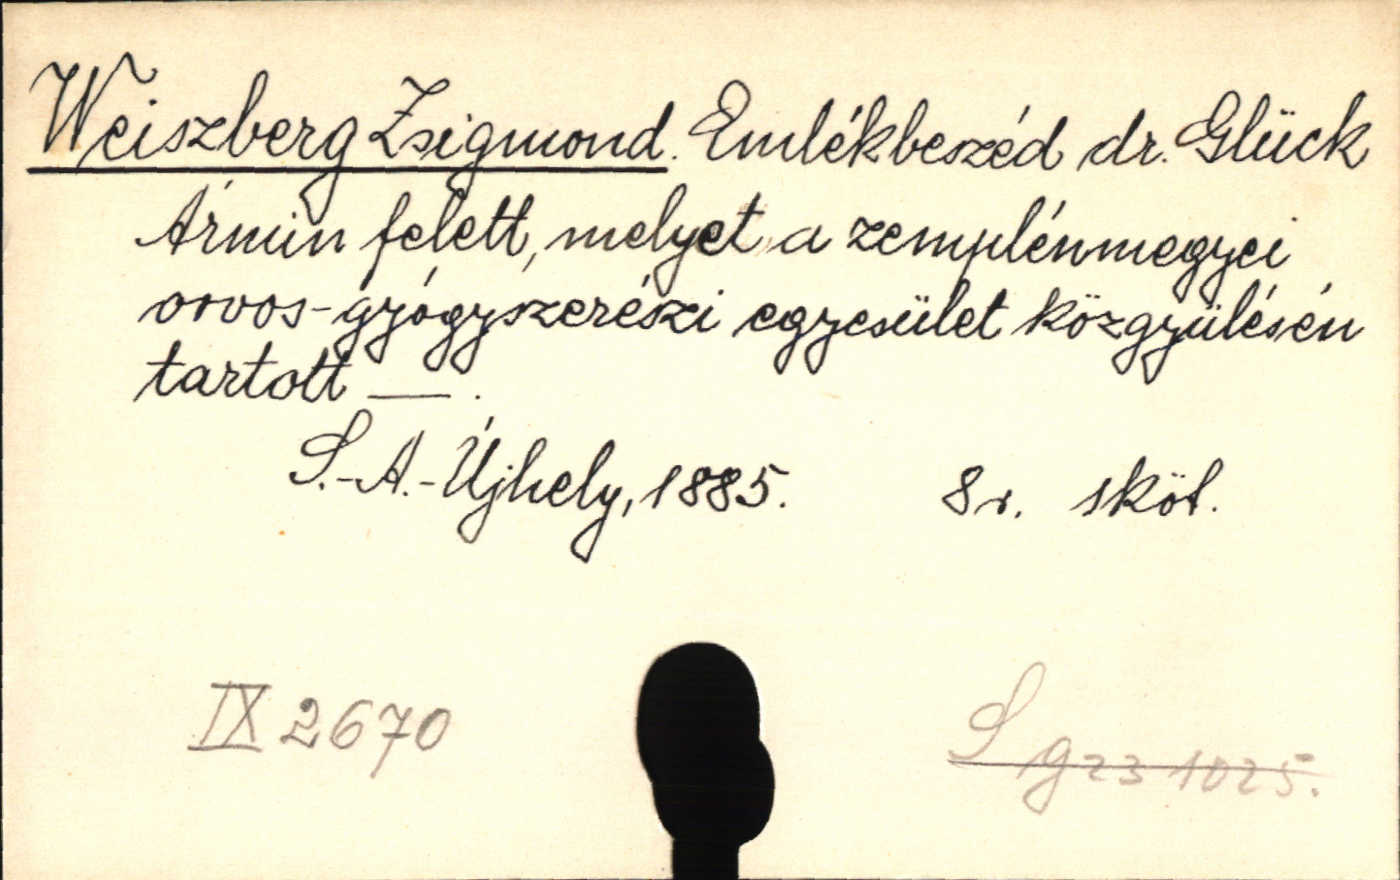 Weiszberg Zsigmond. Emlékbeszéd dr. Glück
Ármin felett, melyet a zemplénmegyei
orvos-gyógyszerészi egyesület közgyülésén
tartott —.
S.-A.-Újhely, 1885. 8r. sköt.
IX 2670